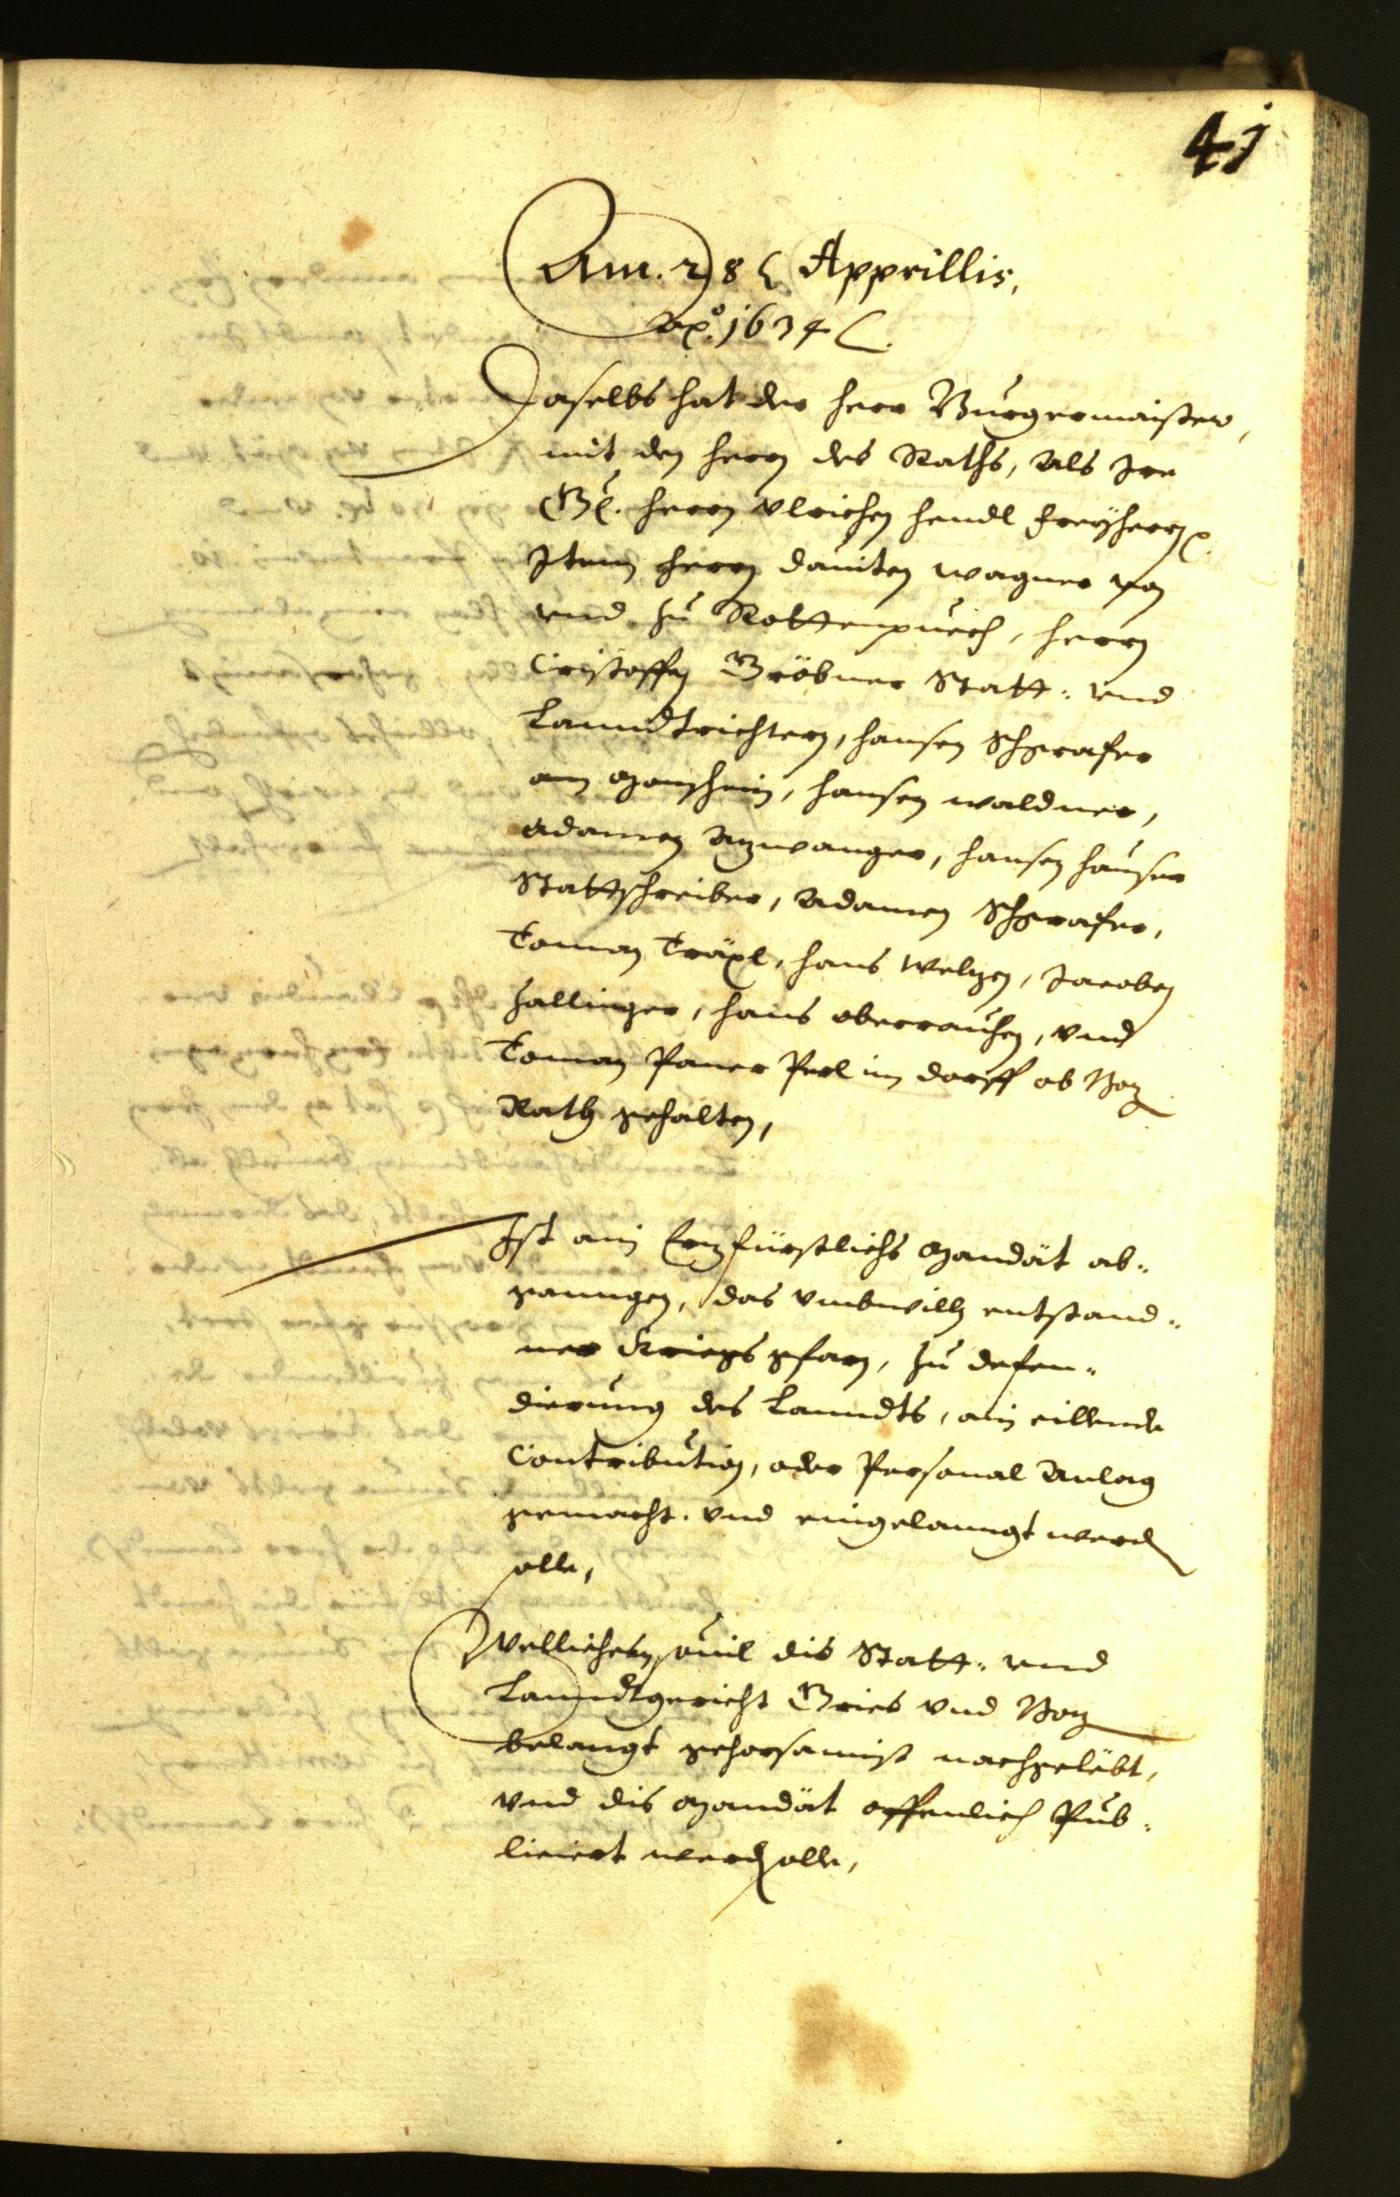 41
Am. 28 Apprillis,
Aõ. 1634.
Daselbs hat der herr Burgermaister,
mit den herrn des Raths, Als Ire
Gn. herrn Vlrichen hendl freyherrn
Item herrn dauiten wagner von
vnd zu Rottenpuech, herrn
Cristoffen Gröbner Statt- vnd
Lanndtrichtern, hansen Schgrafer
am Manshein, hansen waldner,
Adamen Azwanger, hansen hauser
Stattschreiber, Adamen Schgrafer,
Toman Träxl, hans Welzen, Jacoben
Zallinger, hans oberrauchen, vnd
Toman Paner Perl im dorff ab Boz
Rath gehalten,
Ist ain Erzfürstlichs Mandat ab-
ganngen, das vmbwilln entstand-
ner kriegs gfarn, zu defen-
dierung des Lanndts, ain eillende
Contribution, oder Personal Anlag
gemacht. vnd eingelanngt werden
solle,
Wellichem souil dis Statt- vnd
Lanndtgericht Gries vnd Boz
belangt gehorsamist nachgelebt,
vnd dis Mandat offenlich Pub-
liciert werden solle,